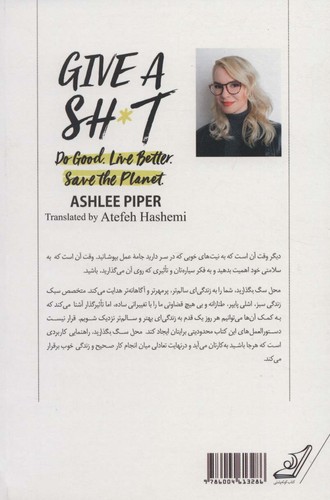 GIVE A
SH*T
Do Good. Live Better.
Save the Planet.
ASHLEE PIPER
Translated by Atefeh Hashemi
دیگر وقت آن است که به نیت‌های خوبی که در سر دارید جامهٔ عمل بپوشانید. وقت آن است که به
سلامتی خود اهمیت بدهید و به فکر سیاره‌تان و تأثیری که روی آن می‌گذارید، باشید.
محل سگ بگذارید، شما را به زندگی‌ای سالم‌تر، پرمهرتر و آگاهانه‌تر هدایت می‌کند. متخصص سبک
زندگی سبز، اشلی پایپر، طنازانه و بی هیچ قضاوتی ما را با تغییراتی ساده، اما تأثیرگذار آشنا می‌کند که
به کمک آن‌ها می‌توانیم هر روز یک قدم به زندگی‌ای بهتر و سالم‌تر نزدیک شویم. قرار نیست
دستورالعمل‌های این کتاب محدودیتی برایتان ایجاد کند. محل سگ بگذارید، راهنمایی کاربردی
است که هرجا باشید به‌کارتان می‌آید و درنهایت تعادلی میان انجام کار صحیح و زندگی خوب برقرار
می‌کند.
9 786004 613286